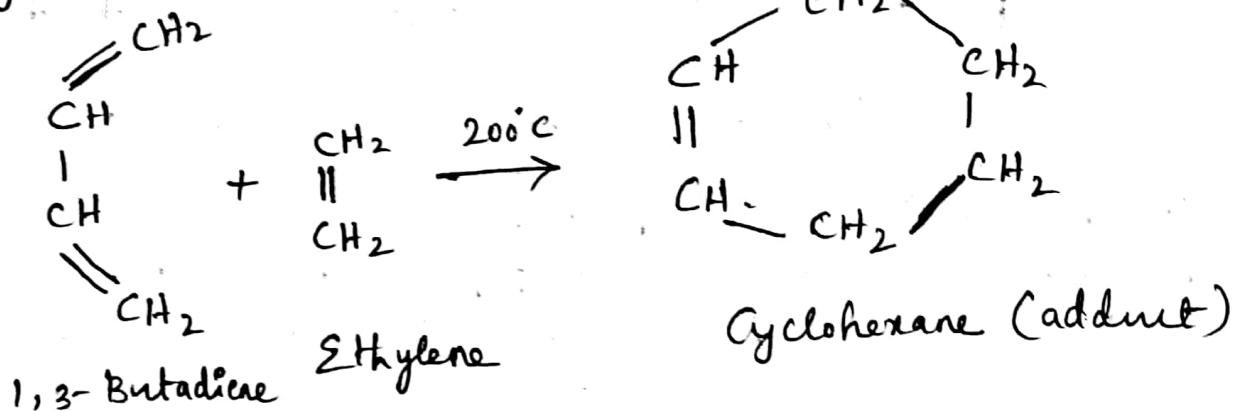 CH2
CH2
CH
CH
CH2
||
CH2
+
200°C
CH
||
CH
CH2
CH2
CH2
CH2
1,3- Butadiene
Ethylene
Cyclohexane (adduct)